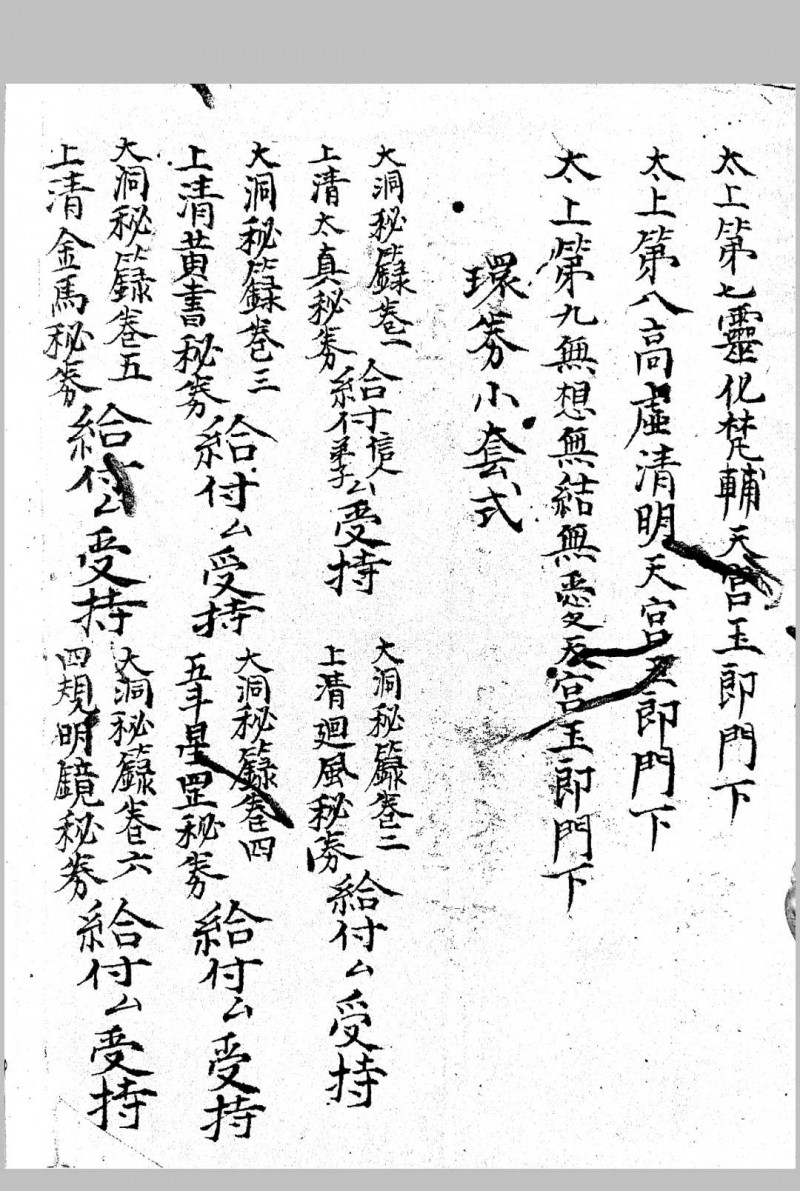 太上第七靈化梵輔天宮玉郎門下
太上第八高虛清明天宮玉郎門下
太上第九無想無結無愛天宮玉郎門下
環券小套式
大洞秘籙卷一
上清太真秘券
給付信人弟子厶受持
大洞秘籙卷二
上清廻風秘券
給付厶受持
大洞秘籙卷三
上清黃書秘券
給付厶受持
大洞秘籙卷四
五斗星罡秘券
給付厶受持
大洞秘籙卷五
上清金馬秘券
給付厶受持
大洞秘籙卷六
四規明鏡秘券
給付厶受持